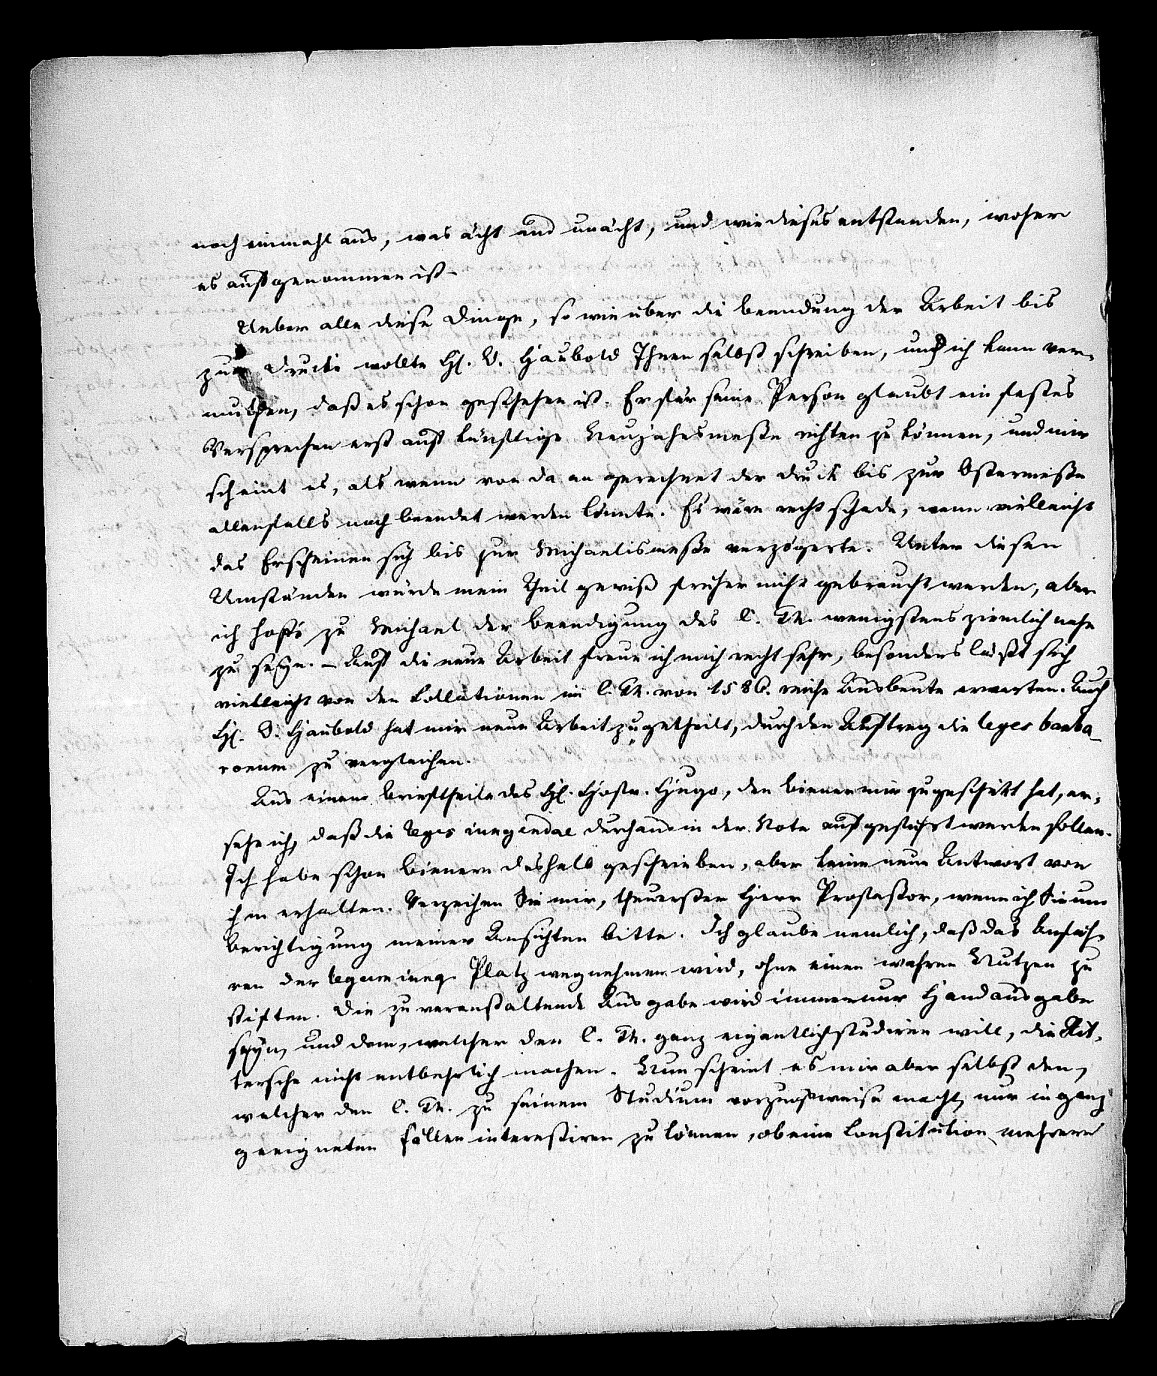 noch einmahl aus, was ächt und unächt, und wie dieses entstanden, woher
es aufgenommen ist –
Ueber alle diese Dinge, so wie über die beendung der Arbeit bis
zum Drucke wollte H. D. Haubold Ihnen selbst schreiben, und ich kann ver-
muthen, daß es schon geschehen ist. Er für seine Person glaubt ein festes
Versprechen erst auf künftige Neujahrsmeße richten zu können, und mir
scheint es, als wenn von da an gerechnet der Druck bis zur Ostermeße
allenfalls noch beendet werden könnte. Es wäre recht schade, wenn vielleicht
das Erscheinen sich bis zur Michaelismeße verzögerte. Unter diesen
Umständen würde mein Theil gewiß früher nicht gebraucht werden, aber
ich hoffe zu Michael der beendigung des C. Th. wenigstens ziemlich nahe
zu seyn. – Auf die neue Arbeit freue ich mich recht sehr, besonders läßt sich
vielleicht von den Collationen im C. Th. von 1586. reiche Ausbeute erwarten. Auch
H. D. Haubold hat mir neue Arbeit zugetheilt, durch den Auftrag die leges barba-
rorum zu vergleichen.
Aus einem Brieftheile des H. Hofr. Hugo, den biener mir zugeschickt hat, er-
sehe ich, daß die leges iungendae durchaus in der Note aufgeführt werden sollen.
Ich habe schon bienern deshalb geschrieben, aber keine neue Antwort von
ihm erhalten. Verzeihen Sie mir, theuerster Herr Profeßor, wenn ich Sie um
berichtigung meiner Ansichten bitte. Ich glaube nemlich, daß das Anfüh-
ren der legum iung. Platz wegnehmen wird, ohne einen wahren Nutzen zu
stiften. Die zu veranstaltende Ausgabe wird immer nur Handausgabe
seyn, und dem, welcher den C. Th. ganz eigentlich studiren will, die Rit-
tersche nicht entbehrlich machen. Nun scheint es mir aber selbst den,
welcher den C. Th. zu seinem Studium vorzugsweise macht, nur in ganz
geeigneten Fällen interessiren zu können, ob eine Constitution mehrere